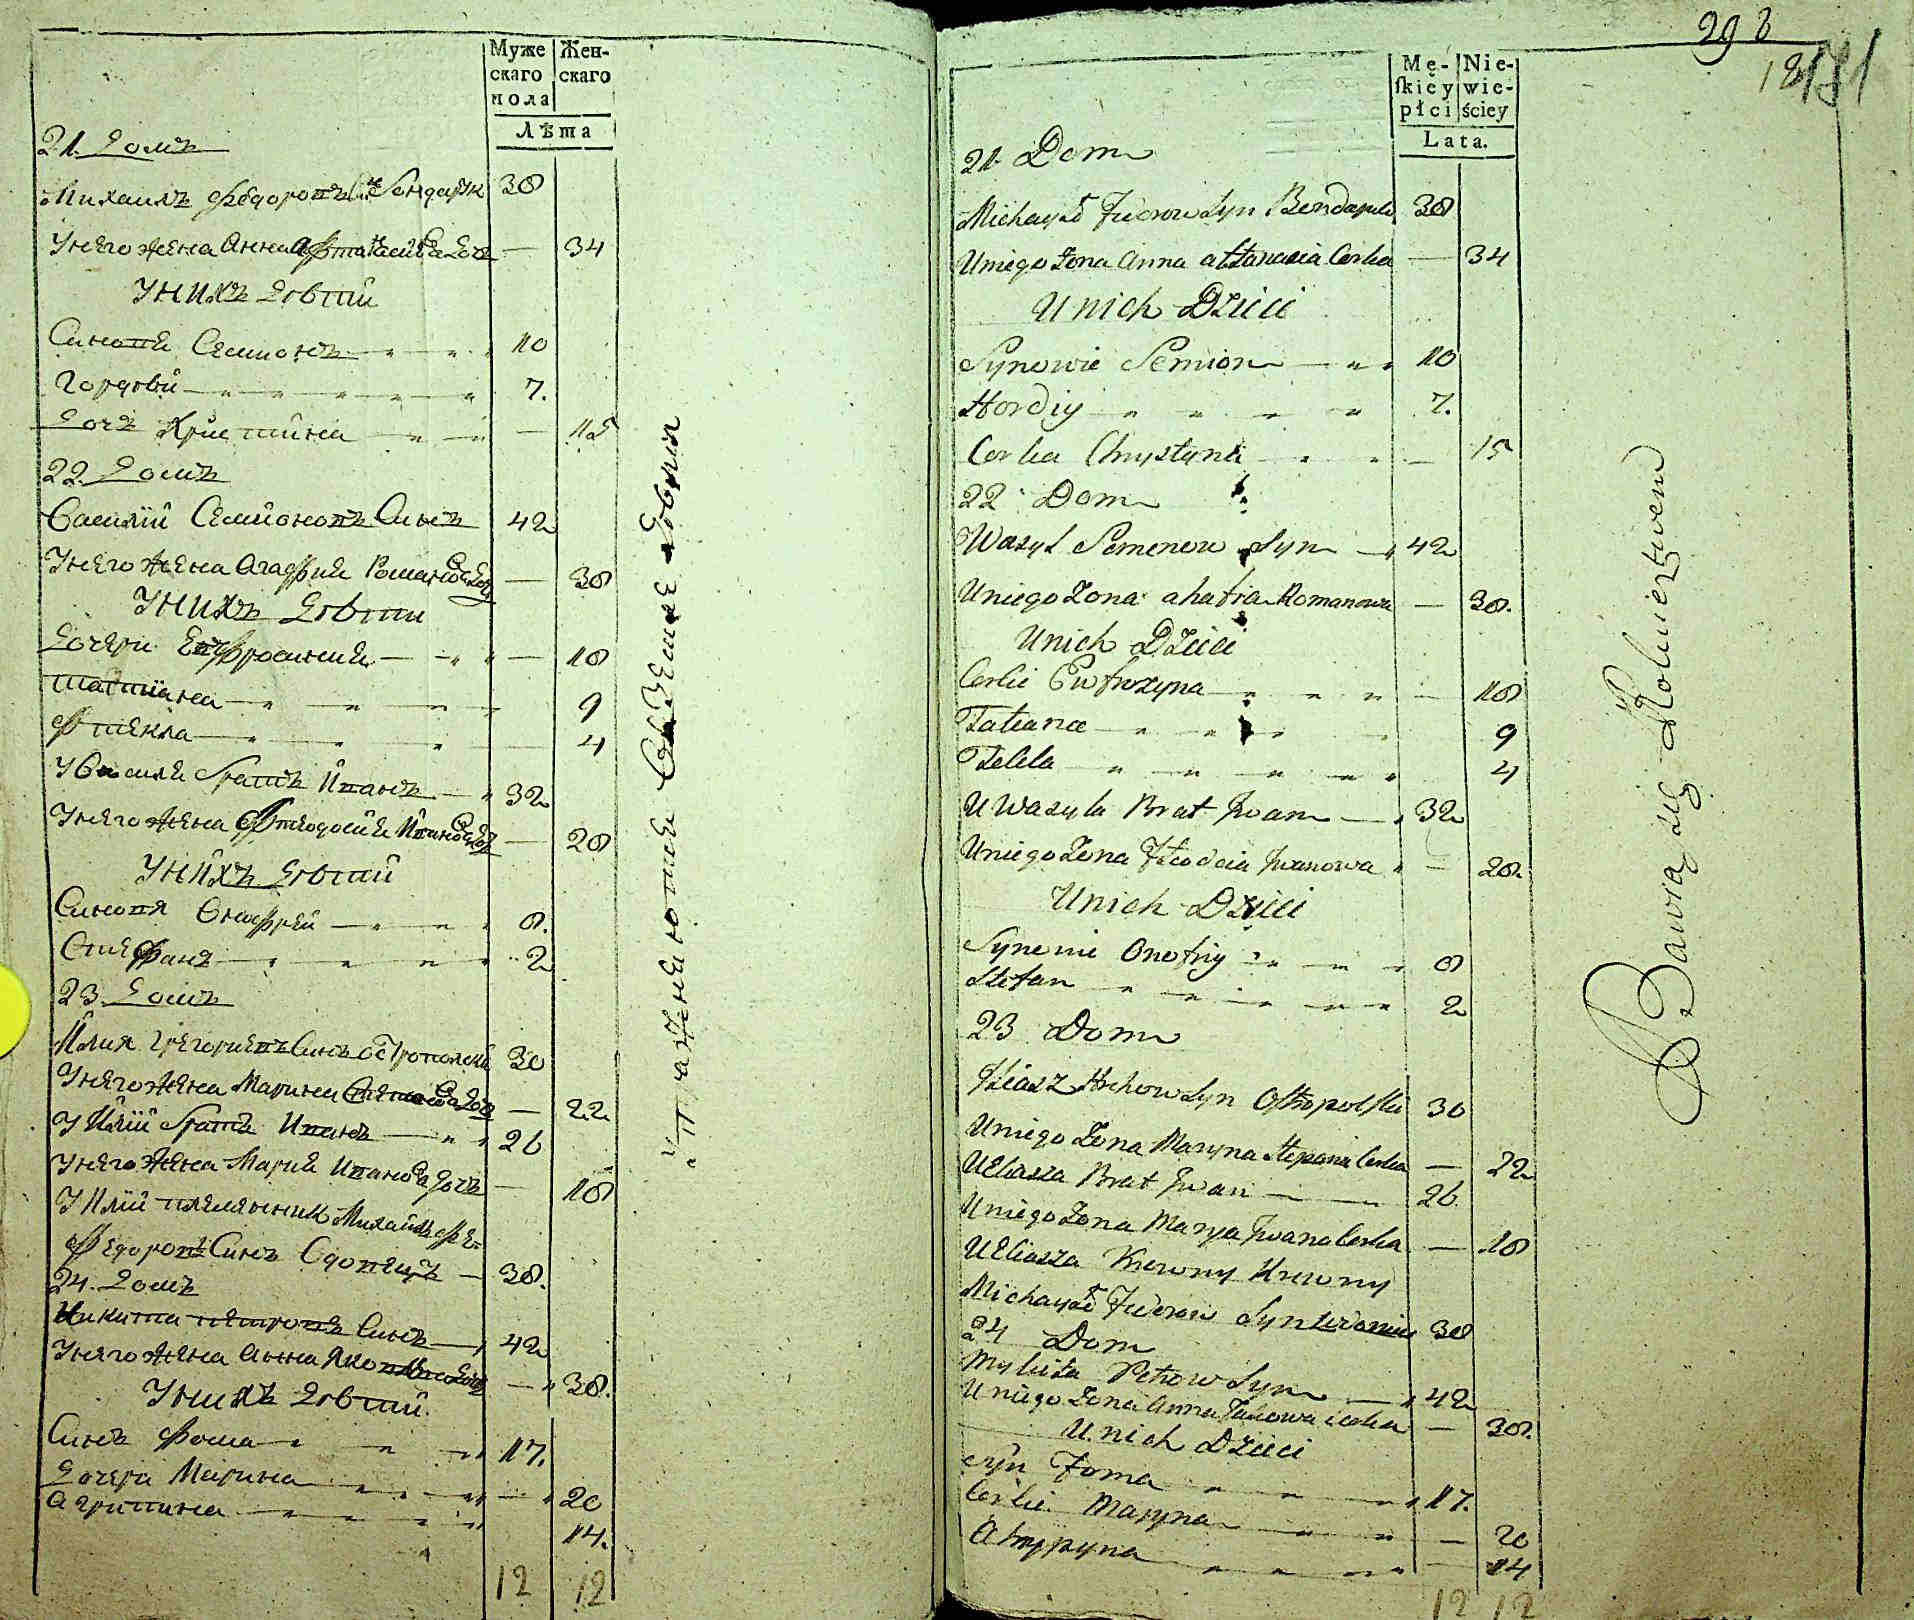 Муже
скаго
пола
Жен-
скаго
Лѣта
21. Домъ
Михаилъ Федоровъ С. Бондарук 38
Унего жена Анна Афтанасиева Дочь — 34
Унихъ Дѣти
Синовя Семионъ 10
Гордѣй 7.
Дочъ Христина — 15
22. Домъ
Василій Семионовъ Синъ 42
Унего жена Агафия Романова Дочъ — 38
Унихъ Дѣти
Дочери Евфросиния — 18
Татияна 9
Фтекла 4
У Василя братъ Иванъ 32
Унего жена Фтеодосия Иванова Дочъ — 28
Унихъ Дѣти
Синовя Онофрей 8.
Стефанъ 2
23. Домъ
Илия Григориевъ Синъ Острополский 30
Унего жена Марина Степанова Дочъ — 22
У Илии братъ Иванъ 26
Унего жена Мария Иванова дочъ — 18
У Илии племянник Михаилъ Фе=
Федоровъ Синъ Вдовецъ — 38.
24. Домъ
Никита Петровъ Синъ — 42
Унего жена Анна Яковлева Дочъ — 38.
Унихъ Дѣти
Синъ Фома 17.
Дочери Марина — 20
Агрипина 14.
12 12
упражняютця въ Земле Делии
298
181
Mę-
ſkiey
płci
Nie-
wie-
ściey
Lata.
21. Dom
Michayło Fedorow Syn Bondaruk 38
Uniego Zona Anna Aftanasia Corka — 34
Unich Dzieci
Synowie Semion 10
Hordiy 7.
Corka Chrystyna — 15
22 Dom
Wasyl Semenow Syn 42
Uniego Zona Ahafia Romanowa — 38.
Unich Dzieci
Corki Ewfrozyna — 18
Tatiana 9
Tekla 4
U Wasyla Brat Jwan — 32
Uniego Zona Fteodosia Jwanowa — 28
Unich Dzieci
Synowie Onofriy 8
Stefan 2
23 Dom
Eliasz Hrehorow Syn Ostropolski 30
Uniego Zona Maryna Stepana Corka — 22
U Eliasza Brat Jwan 26.
Uniego Zona Marya Jwana Corka — 18
U Eliasza Krewny Krewny
Michayło Fedorow Syn Wdowiec 38
24 Dom
Mykita Petrow Syn — 42
Uniego Zona Anna Jakowa Corka — 38.
Unich Dzieci
Syn Foma 17.
Corki Maryna — 20
Ahrypyna — 14
12 12
Bawią się Rolnictwem